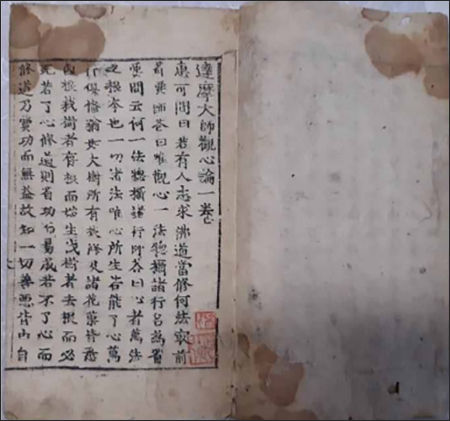 達摩大師觀心論一卷
惠可問曰若有人志求佛道當修何法
師答曰唯觀心一法總攝諸行名爲省
要問云何一法總攝諸行師答曰心者萬法
之根本也一切諸法唯心所生若能了心萬
行俱備猶如大樹所有枝條及諸花菓皆悉
因根栽樹者存根而始生伐樹者去根而必
死若了心修道則省功而易成若不了心而
修道乃費功而無益故知一切善惡皆由自